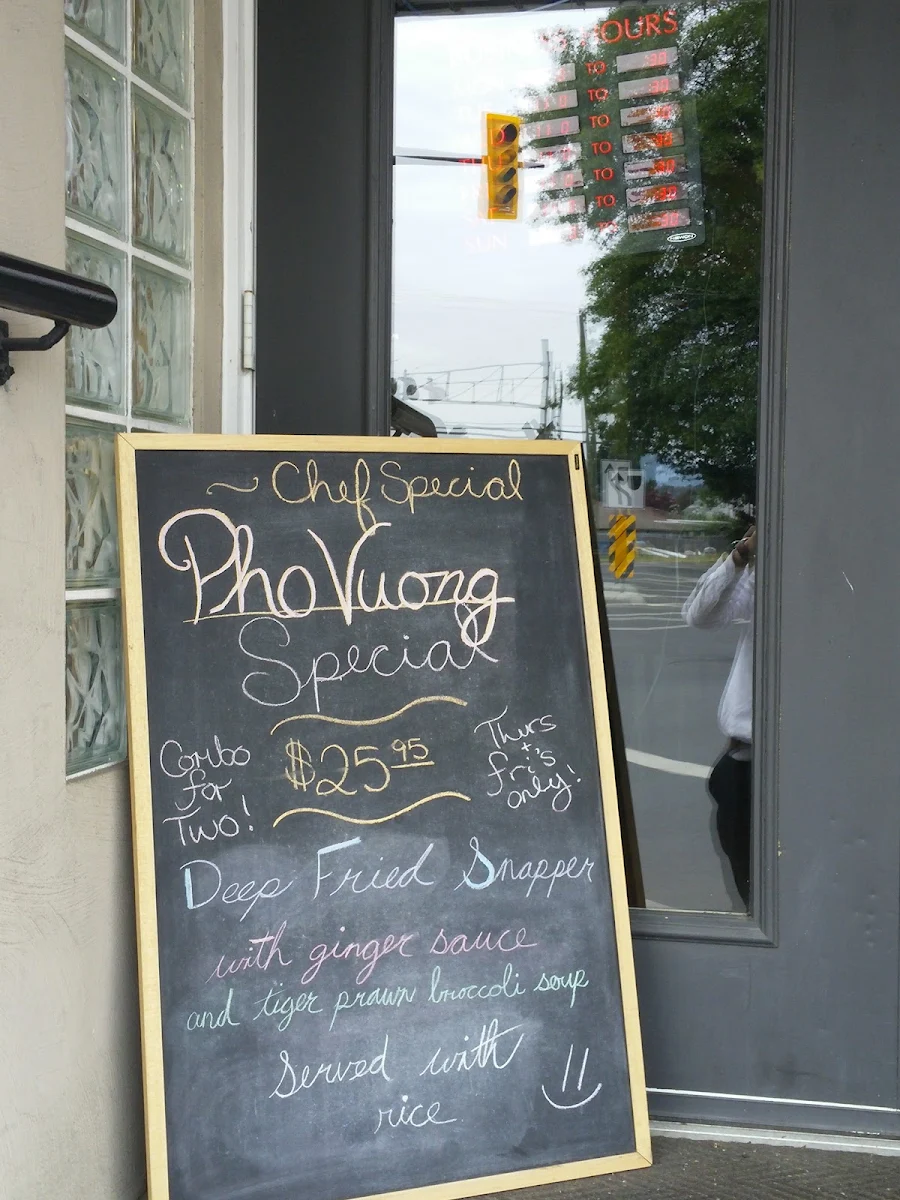 HOURS
TO
TO
TO
TO
TO
TO
SUN
~ Chef Special
Pho Vuong
Special
Combo
for
Two!
$25.95
Thurs
+
fri's
only!
Deep Fried Snapper
with ginger sauce
and tiger prawn broccoli soup
Served with
rice